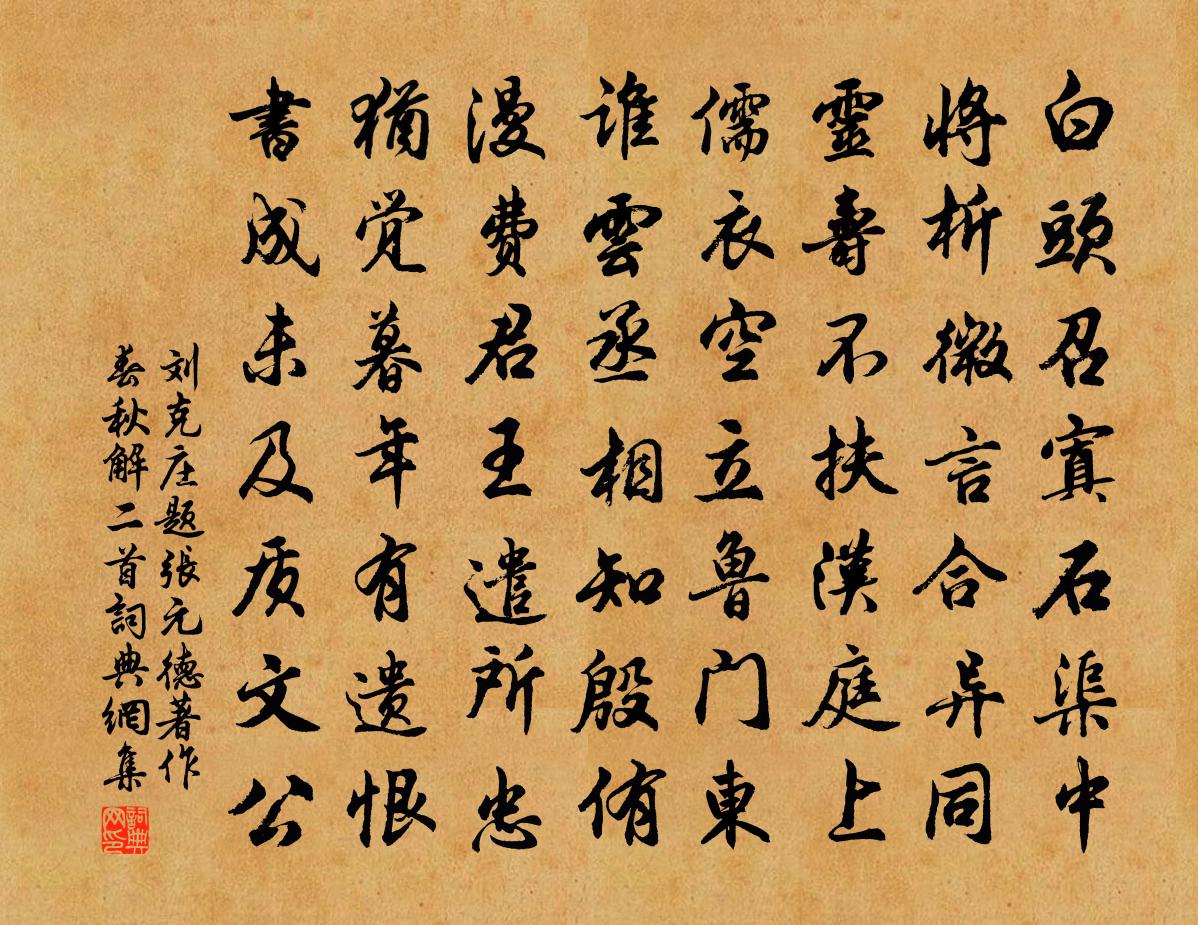 白頭召寘石渠中
將析微言合异同
靈壽不扶漢庭上
儒衣空立魯门東
谁雲丞相知殷侑
漫費君王遣所忠
猶觉暮年有遗恨
書成未及质文公
刘克庄题張元德著作
春秋解二首詞典網集
詞典网印